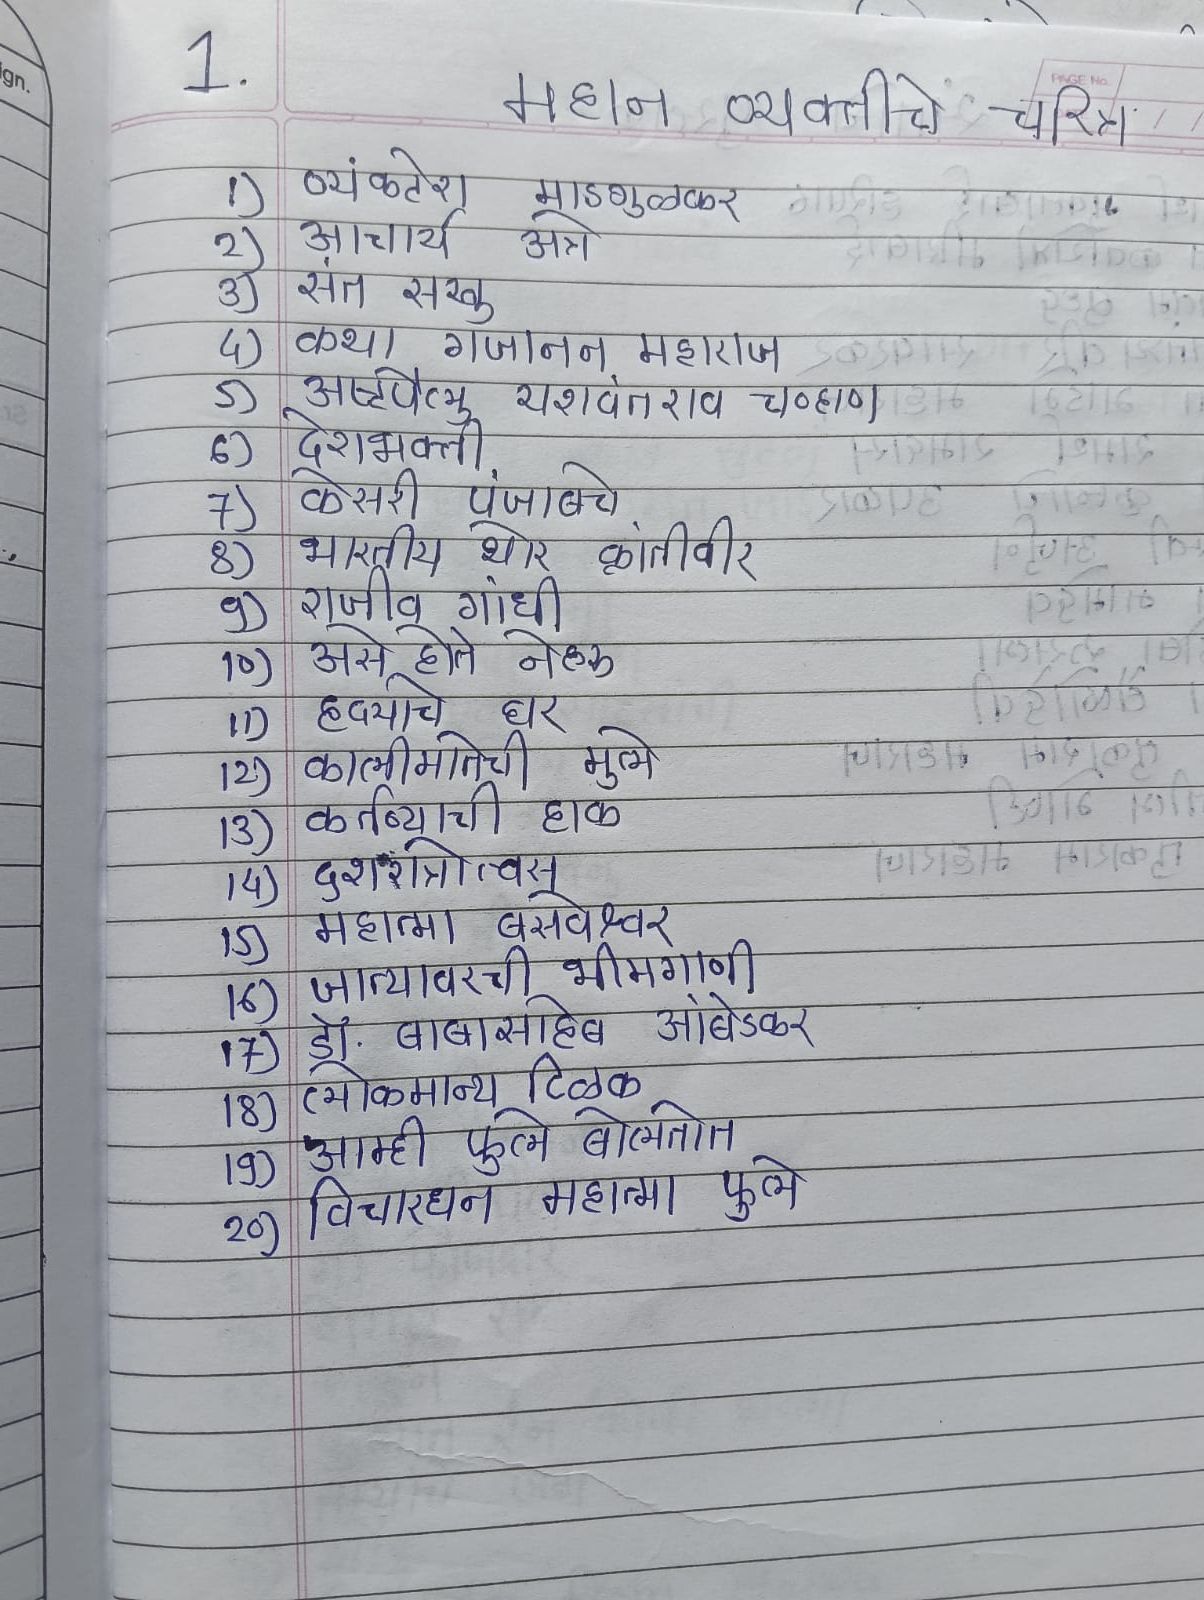 ign.
1.
PAGE No.
महान व्यक्तीचे चरित्र
1) व्यंकटेश माडगुळकर
2) आचार्य अत्रे
3) संत सखु
4) कथा गजानन महाराज
5) यशवंतराव चव्हाण
6) देशभक्ती
7) केसरी पंजाबचे
8) भारतीय थोर क्रांतीवीर
9) राजीव गांधी
10) असे होते नेहरू
11) हृदयाचे घर
12) मुले
13) कर्तव्याची हाक
14)
15) महात्मा बसवेश्वर
16) जात्यावरची भीमगाणी
17) डॉ. बाबासाहेब आंबेडकर
18) लोकमान्य टिळक
19) आम्ही फुले बोलतोत
20) विचारधन महात्मा फुले